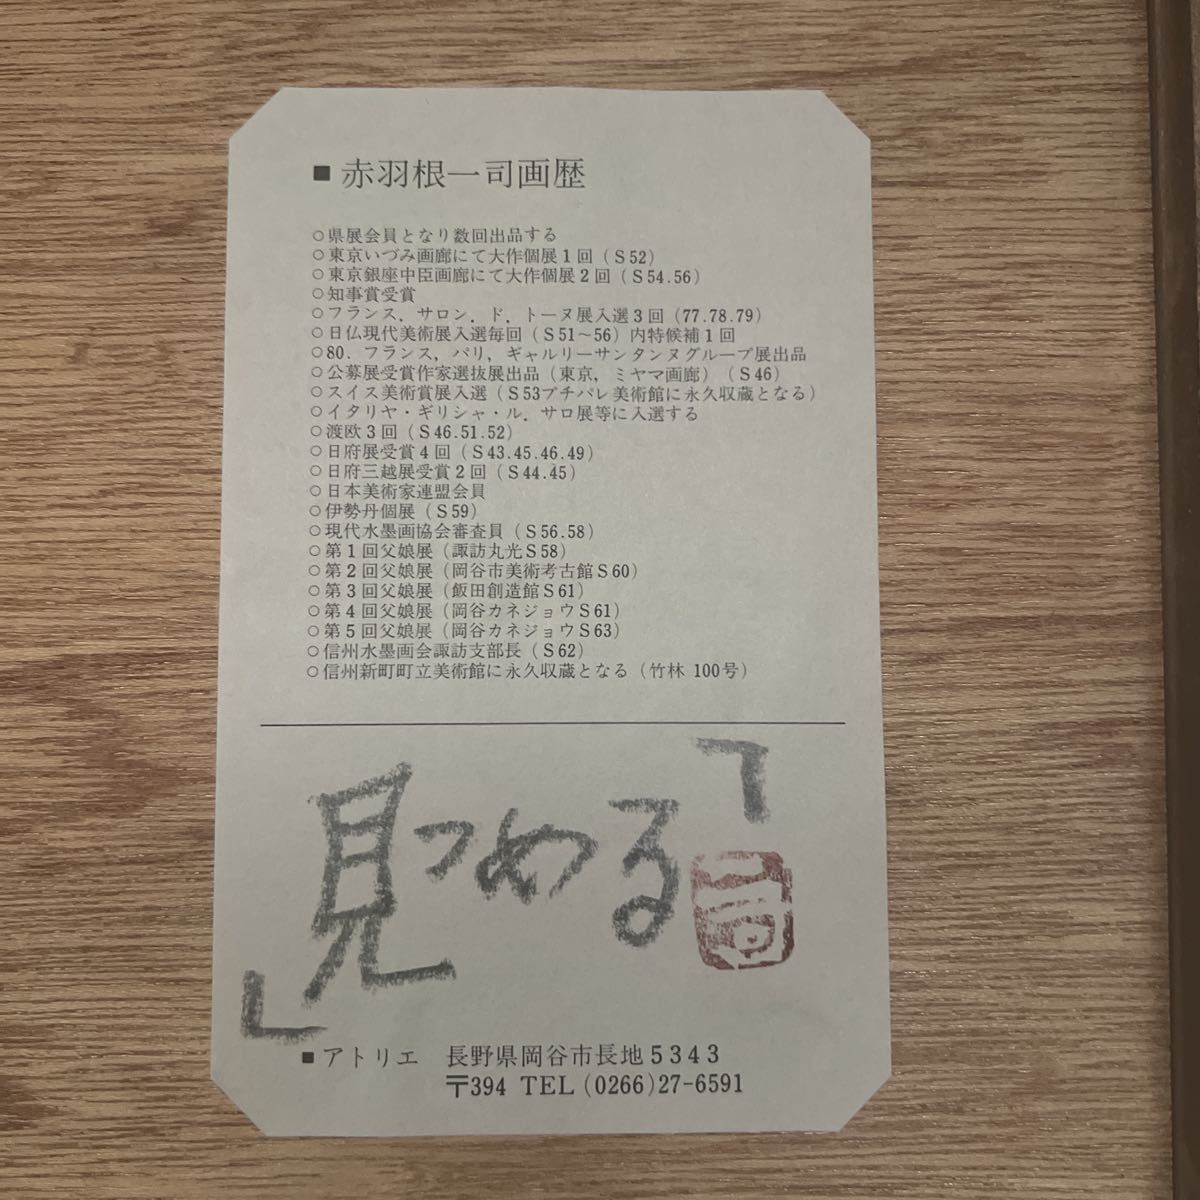 ■赤羽根一司画歴
○県展会員となり数回出品する
○東京いづみ画廊にて大作個展1回(S52)
○東京銀座中臣画廊にて大作個展2回(S54.56)
○知事賞受賞
○フランス.サロン.ド.トーヌ展入選3回(77.78.79)
○日仏現代美術展入選毎回(S51~56)内特候補1回
○80.フランス,パリ,ギャルリーサンタンヌグループ展出品
○公募展受賞作家選抜展出品(東京,ミヤマ画廊)(S46)
○スイス美術賞展入選(S53プチパレ美術館に永久収蔵となる)
○イタリヤ・ギリシャ・ル.サロ展等に入選する
○渡欧3回(S46.51.52)
○日府展受賞4回(S43.45.46.49)
○日府三越展受賞2回(S44.45)
○日本美術家連盟会員
○伊勢丹個展(S59)
○現代水墨画協会審査員(S56.58)
○第1回父娘展(諏訪丸光S58)
○第2回父娘展(岡谷市美術考古館S60)
○第3回父娘展(飯田創造館S61)
○第4回父娘展(岡谷カネジョウS61)
○第5回父娘展(岡谷カネジョウS63)
○信州水墨画会諏訪支部長(S62)
○信州新町町立美術館に永久収蔵となる(竹林 100号)
「見つめる」
一司
■アトリエ 長野県岡谷市長地5343
〒394 TEL(0266)27-6591